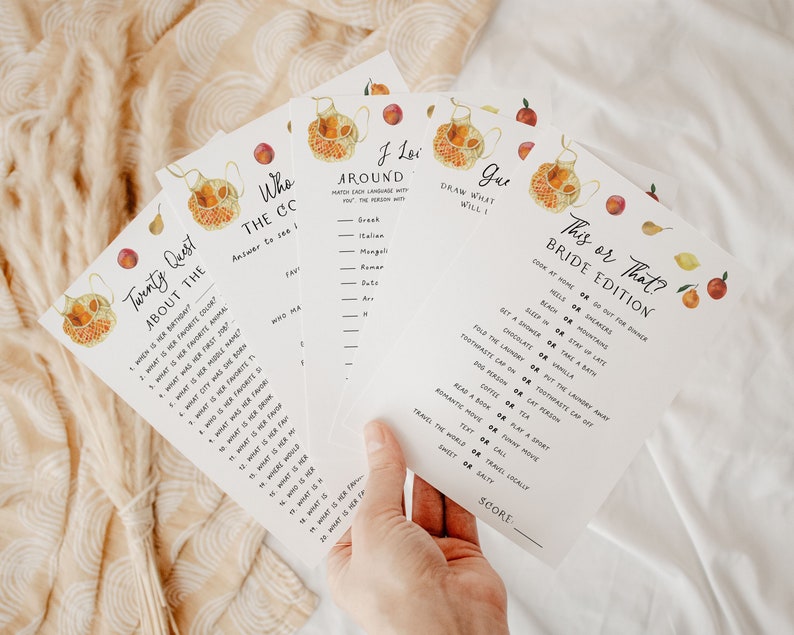 Twenty Quest
ABOUT THE
1. WHEN IS HER BIRTHDAY?
2. WHAT IS HER FAVORITE COLOR?
3. WHAT IS HER FAVORITE ANIMAL
4. WHAT WAS HER FIRST JOB?
5. WHAT IS HER MIDDLE NAME?
6. WHAT CITY WAS SHE BORN
7. WHAT IS HER FAVORITE
8. WHO IS HER FAVORITE
9. WHAT WAS HER FAVOR
10. WHAT IS HER DRINK
11. WHAT IS HER FAVOR
12. WHAT IS HER FAVO
13. WHAT IS HER
14. WHERE WOULD
15. WHAT IS HER
16. WHO IS HER
17. WHAT IS H
18. WHAT IS
19. WHAT IS HER FAV
20. WHAT IS HER FA
Who
THE CO
Answer to see
FAV
WHO MA
I Lo
AROUND
MATCH EACH LANGUAGE WITH
YOU". THE PERSON WITH
Greek
Italian
Mongoli
Roman
Date
Arr
H
Gue
DRAW WHAT
WILL
This or That?
BRIDE EDITION
COOK AT HOME OR GO OUT FOR DINNER
HEELS OR SNEAKERS
BEACH OR MOUNTAINS
SLEEP IN OR STAY UP LATE
GET A SHOWER OR TAKE A BATH
CHOCOLATE OR VANILLA
FOLD THE LAUNDRY OR PUT THE LAUNDRY AWAY
TOOTHPASTE CAP ON OR TOOTHPASTE CAP OFF
DOG PERSON OR CAT PERSON
COFFEE OR TEA
READ A BOOK OR PLAY A SPORT
ROMANTIC MOVIE OR FUNNY MOVIE
TEXT OR CALL
TRAVEL THE WORLD OR TRAVEL LOCALLY
SWEET OR SALTY
SCORE: